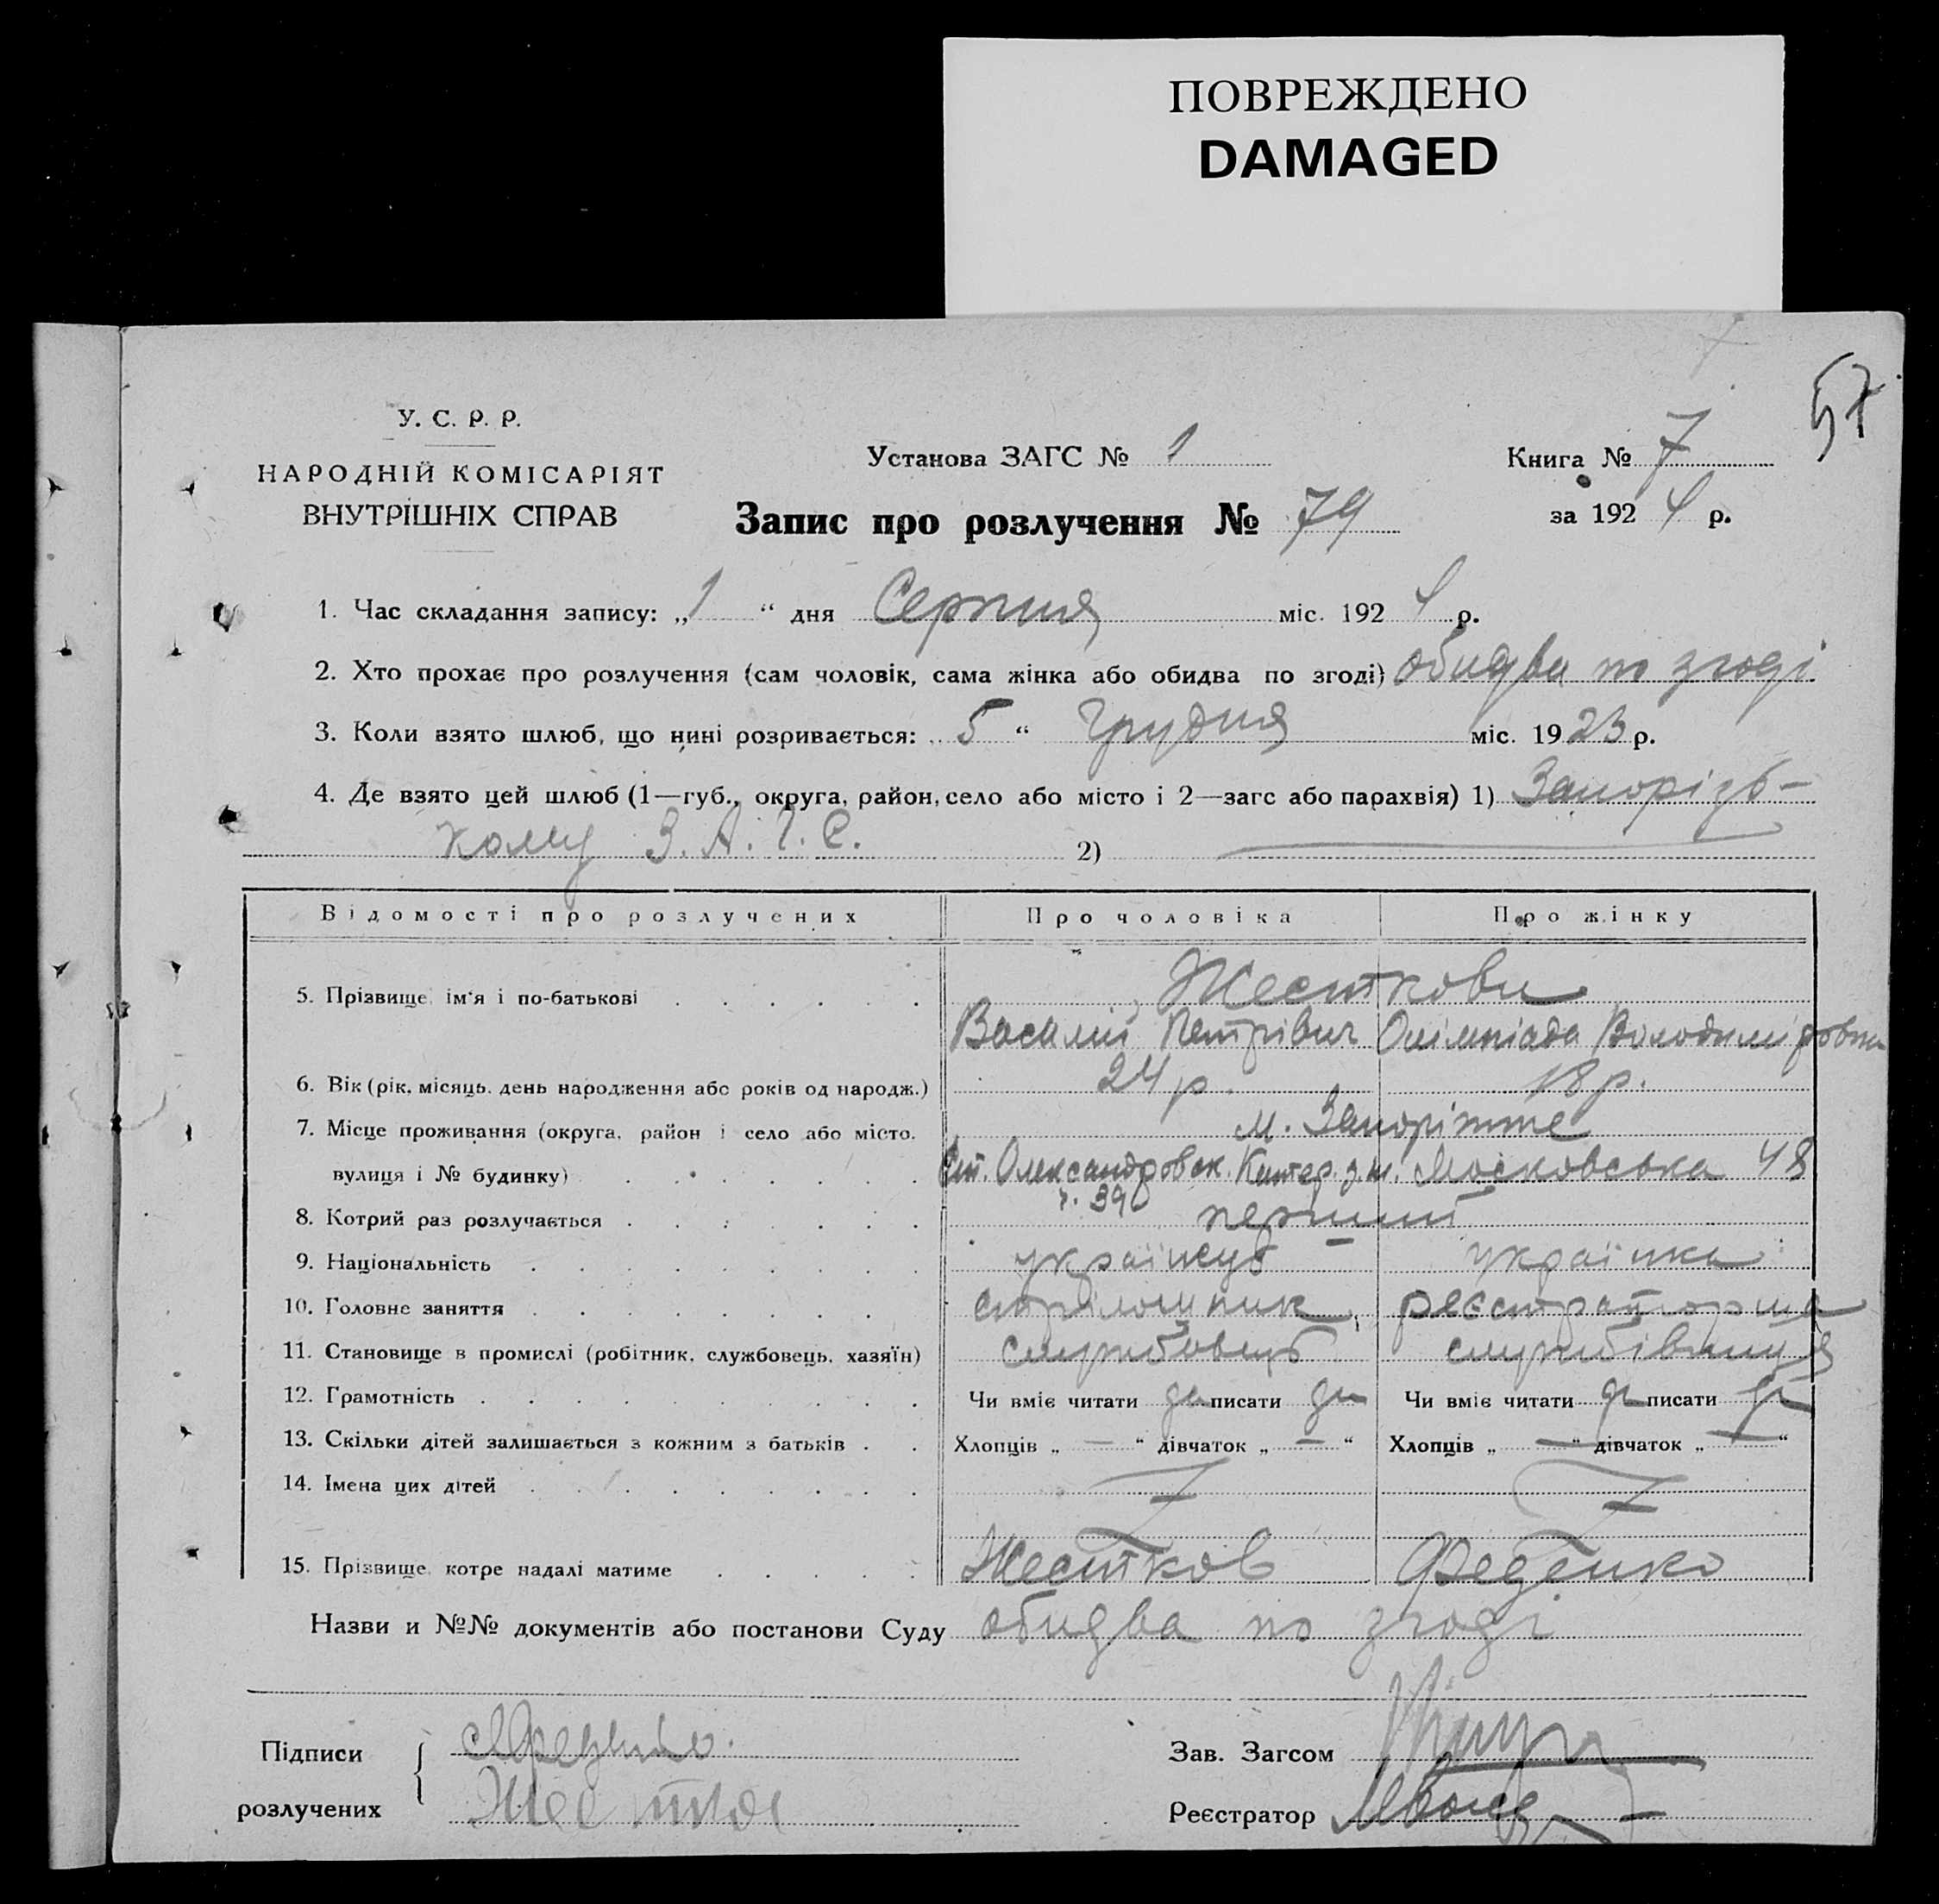 ПОВРЕЖДЕНО
DAMAGED
57
У. С. Р. Р.
НАРОДНІЙ КОМІСАРІЯТ
ВНУТРІШНІХ СПРАВ
Установа ЗАГС № 1
Книга № 7
за 192 4 р.
Запис про розлучення № 79
1. Час складання запису: „1 “ дня Серпня міс. 192 4 р.
2. Хто прохає про розлучення (сам чоловік, сама жінка або обидва по згоді) обидва по згоді
3. Коли взято шлюб, що нині розривається: 5 “ Грудня міс. 19 23 р.
4. Де взято цей шлюб (1—губ., округа, район, село або місто і 2—загс або парахвія) 1) Запорізь-
кому З. А. Г. С. 2)
Відомості про розлучених Про чоловіка Про жінку
5. Прізвище, ім'я і по-батькові Жесткови
Василій Петрівич Олімпіада Володимі ровна
6. Вік (рік, місяць, день народження або років од народж.) 24 р. 18 р.
7. Місце проживання (округа, район і село або місто, м. Запоріжже
вулиця і № будинку) Ст. Олександровск. Катер. з. ш. Московська 48
ч. 39
8. Котрий раз розлучається перший
9. Національність українець українка
10. Головне заняття реєстраторша
11. Становище в промислі (робітник, службовець, хазяїн) службовець службівниця
12. Грамотність Чи вміє читати да писати да Чи вміє читати да писати да
13. Скільки дітей залишається з кожним з батьків Хлопців „ — “ дівчаток „ — “ Хлопців „ — “ дівчаток „ — “
14. Імена цих дітей
15. Прізвище, котре надалі матиме Жестков Феденко
Назви и №№ документів або постанови Суду обидва по згоді
Підписи
розлучених
Жестков
Зав. Загсом
Реєстратор